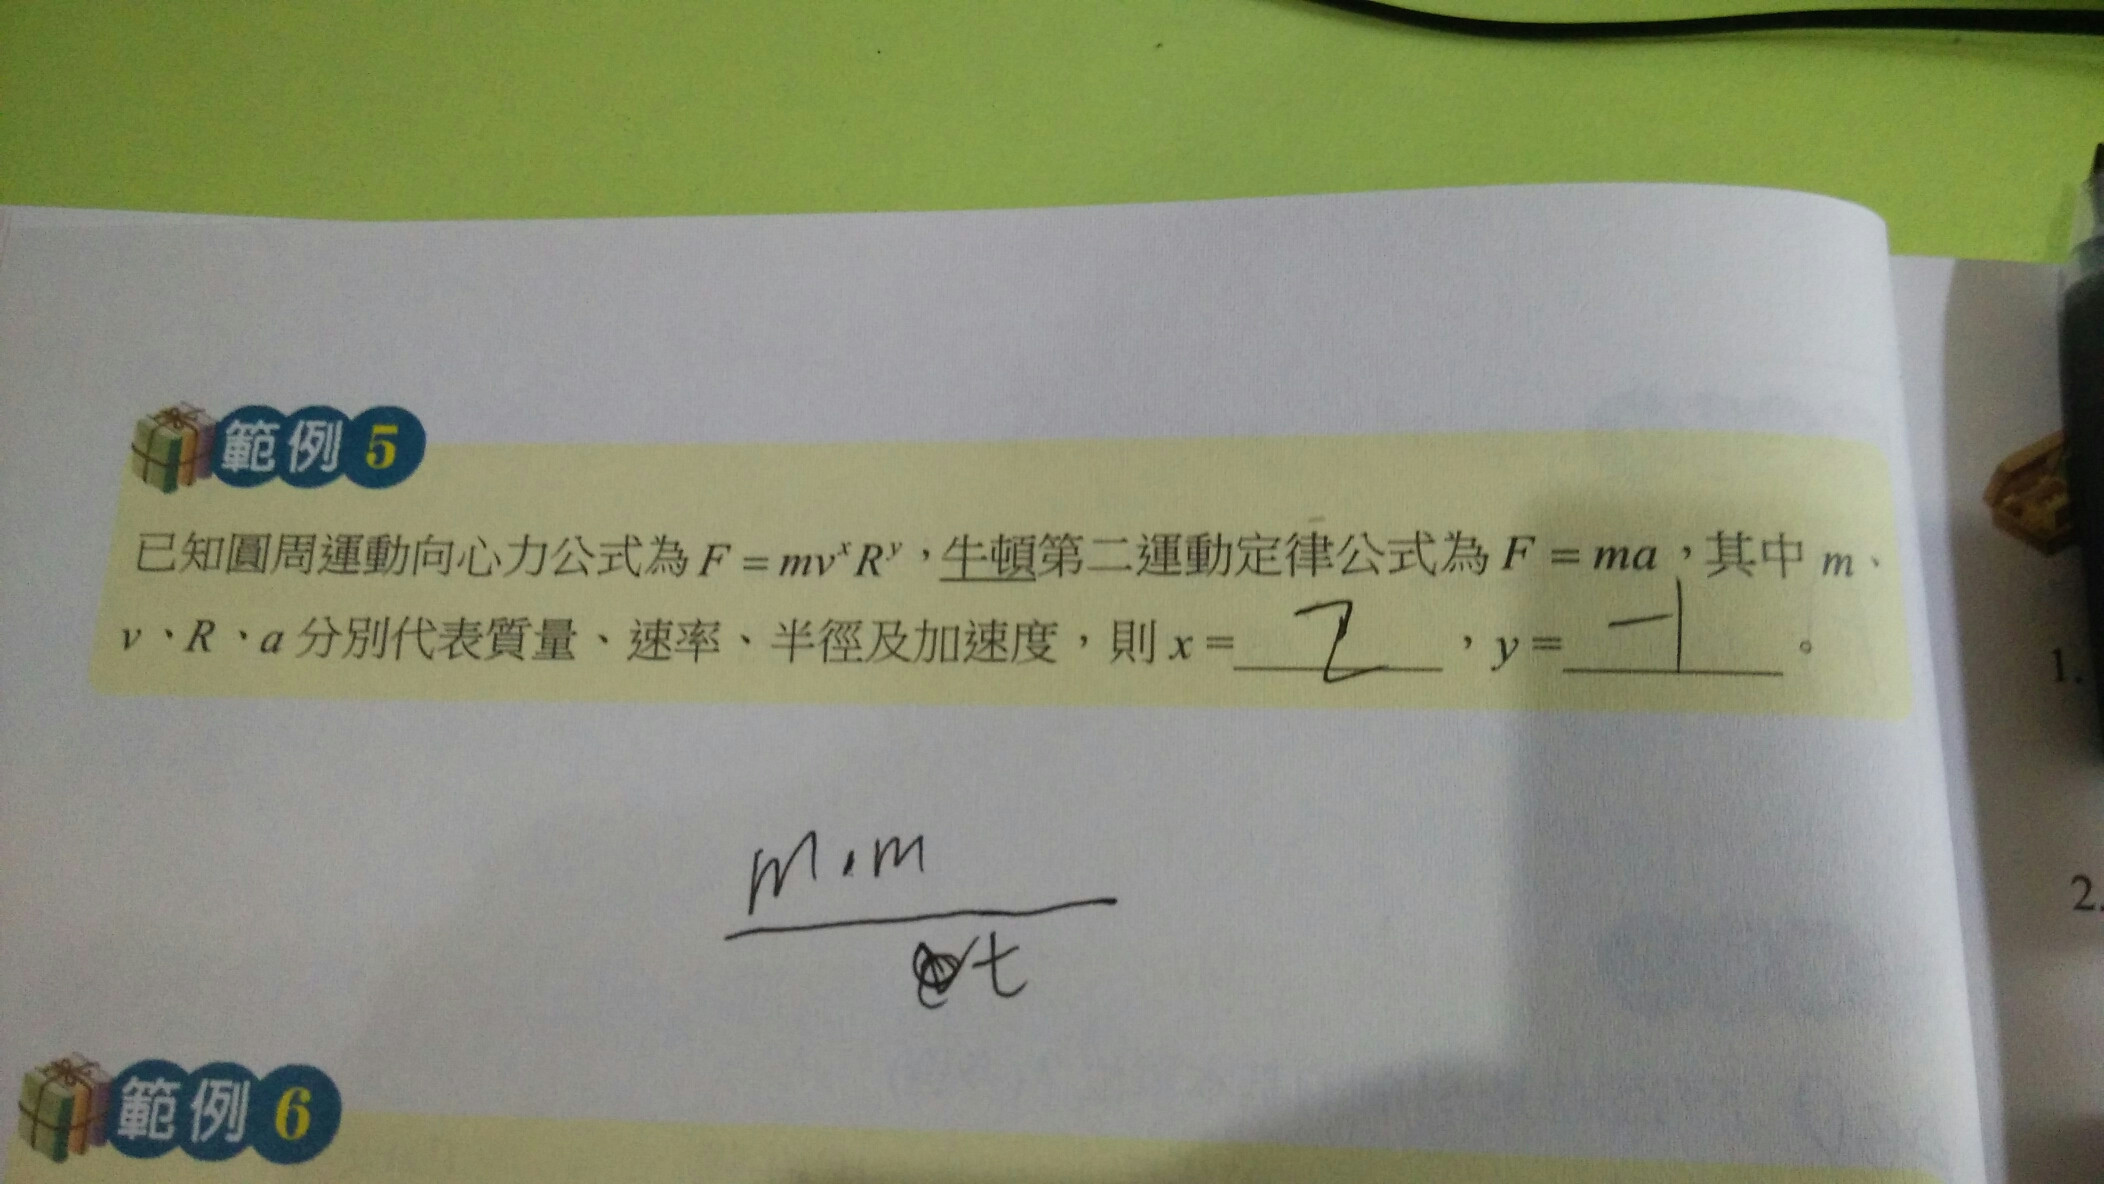 範例 5
已知圓周運動向心力公式為 F = mvˣRʸ,牛頓第二運動定律公式為 F = ma,其中 m、
v、R、a 分別代表質量、速率、半徑及加速度,則 x = 2 ,y = -1 。
m.m
t
範例 6
1.
2.